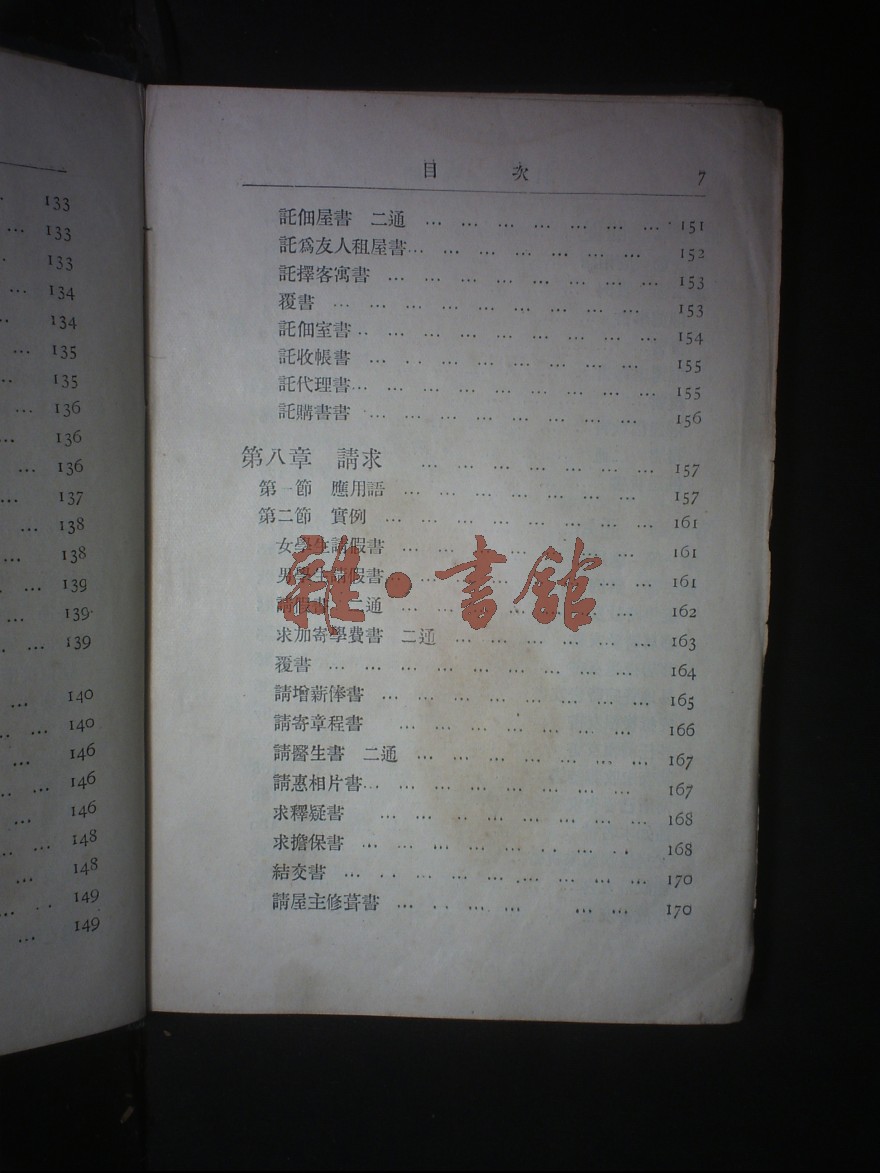 133
133
133
134
134
135
135
136
136
136
137
138
138
139
139
139
140
140
146
146
146
148
148
149
149
目 次 7
託佃屋書 二通 … … … … … … … 151
託爲友人租屋書… … … … … … … 152
託擇客寓書 … … … … … … … … 153
覆書 … … … … … … … … … 153
託佃室書 … … … … … … … … 154
託收帳書 … … … … … … … … 155
託代理書… … … … … … … … … 155
託購書書 … … … … … … … … 156
第八章 請求 … … … … … … … 157
第一節 應用語 … … … … … … … 157
第二節 實例 … … … … … … … … 161
女學生請假書 … … … … … … … 161
男學生請假書… … … … … … … … 161
請假書 二通 … … … … … … … 162
求加寄學費書 二通 … … … … 163
覆書 … … … … … … … … … 164
請增薪俸書 … … … … … … … … 165
請寄章程書 … … … … … … … 166
請醫生書 二通 … … … … … … … 167
請惠相片書… … … … … … … … … 167
求釋疑書 … … … … … … … … 168
求擔保書 … … … … … … … … 168
結交書 … … … … … … … … … 170
請屋主修葺書 … … … … … … 170
雜·書館